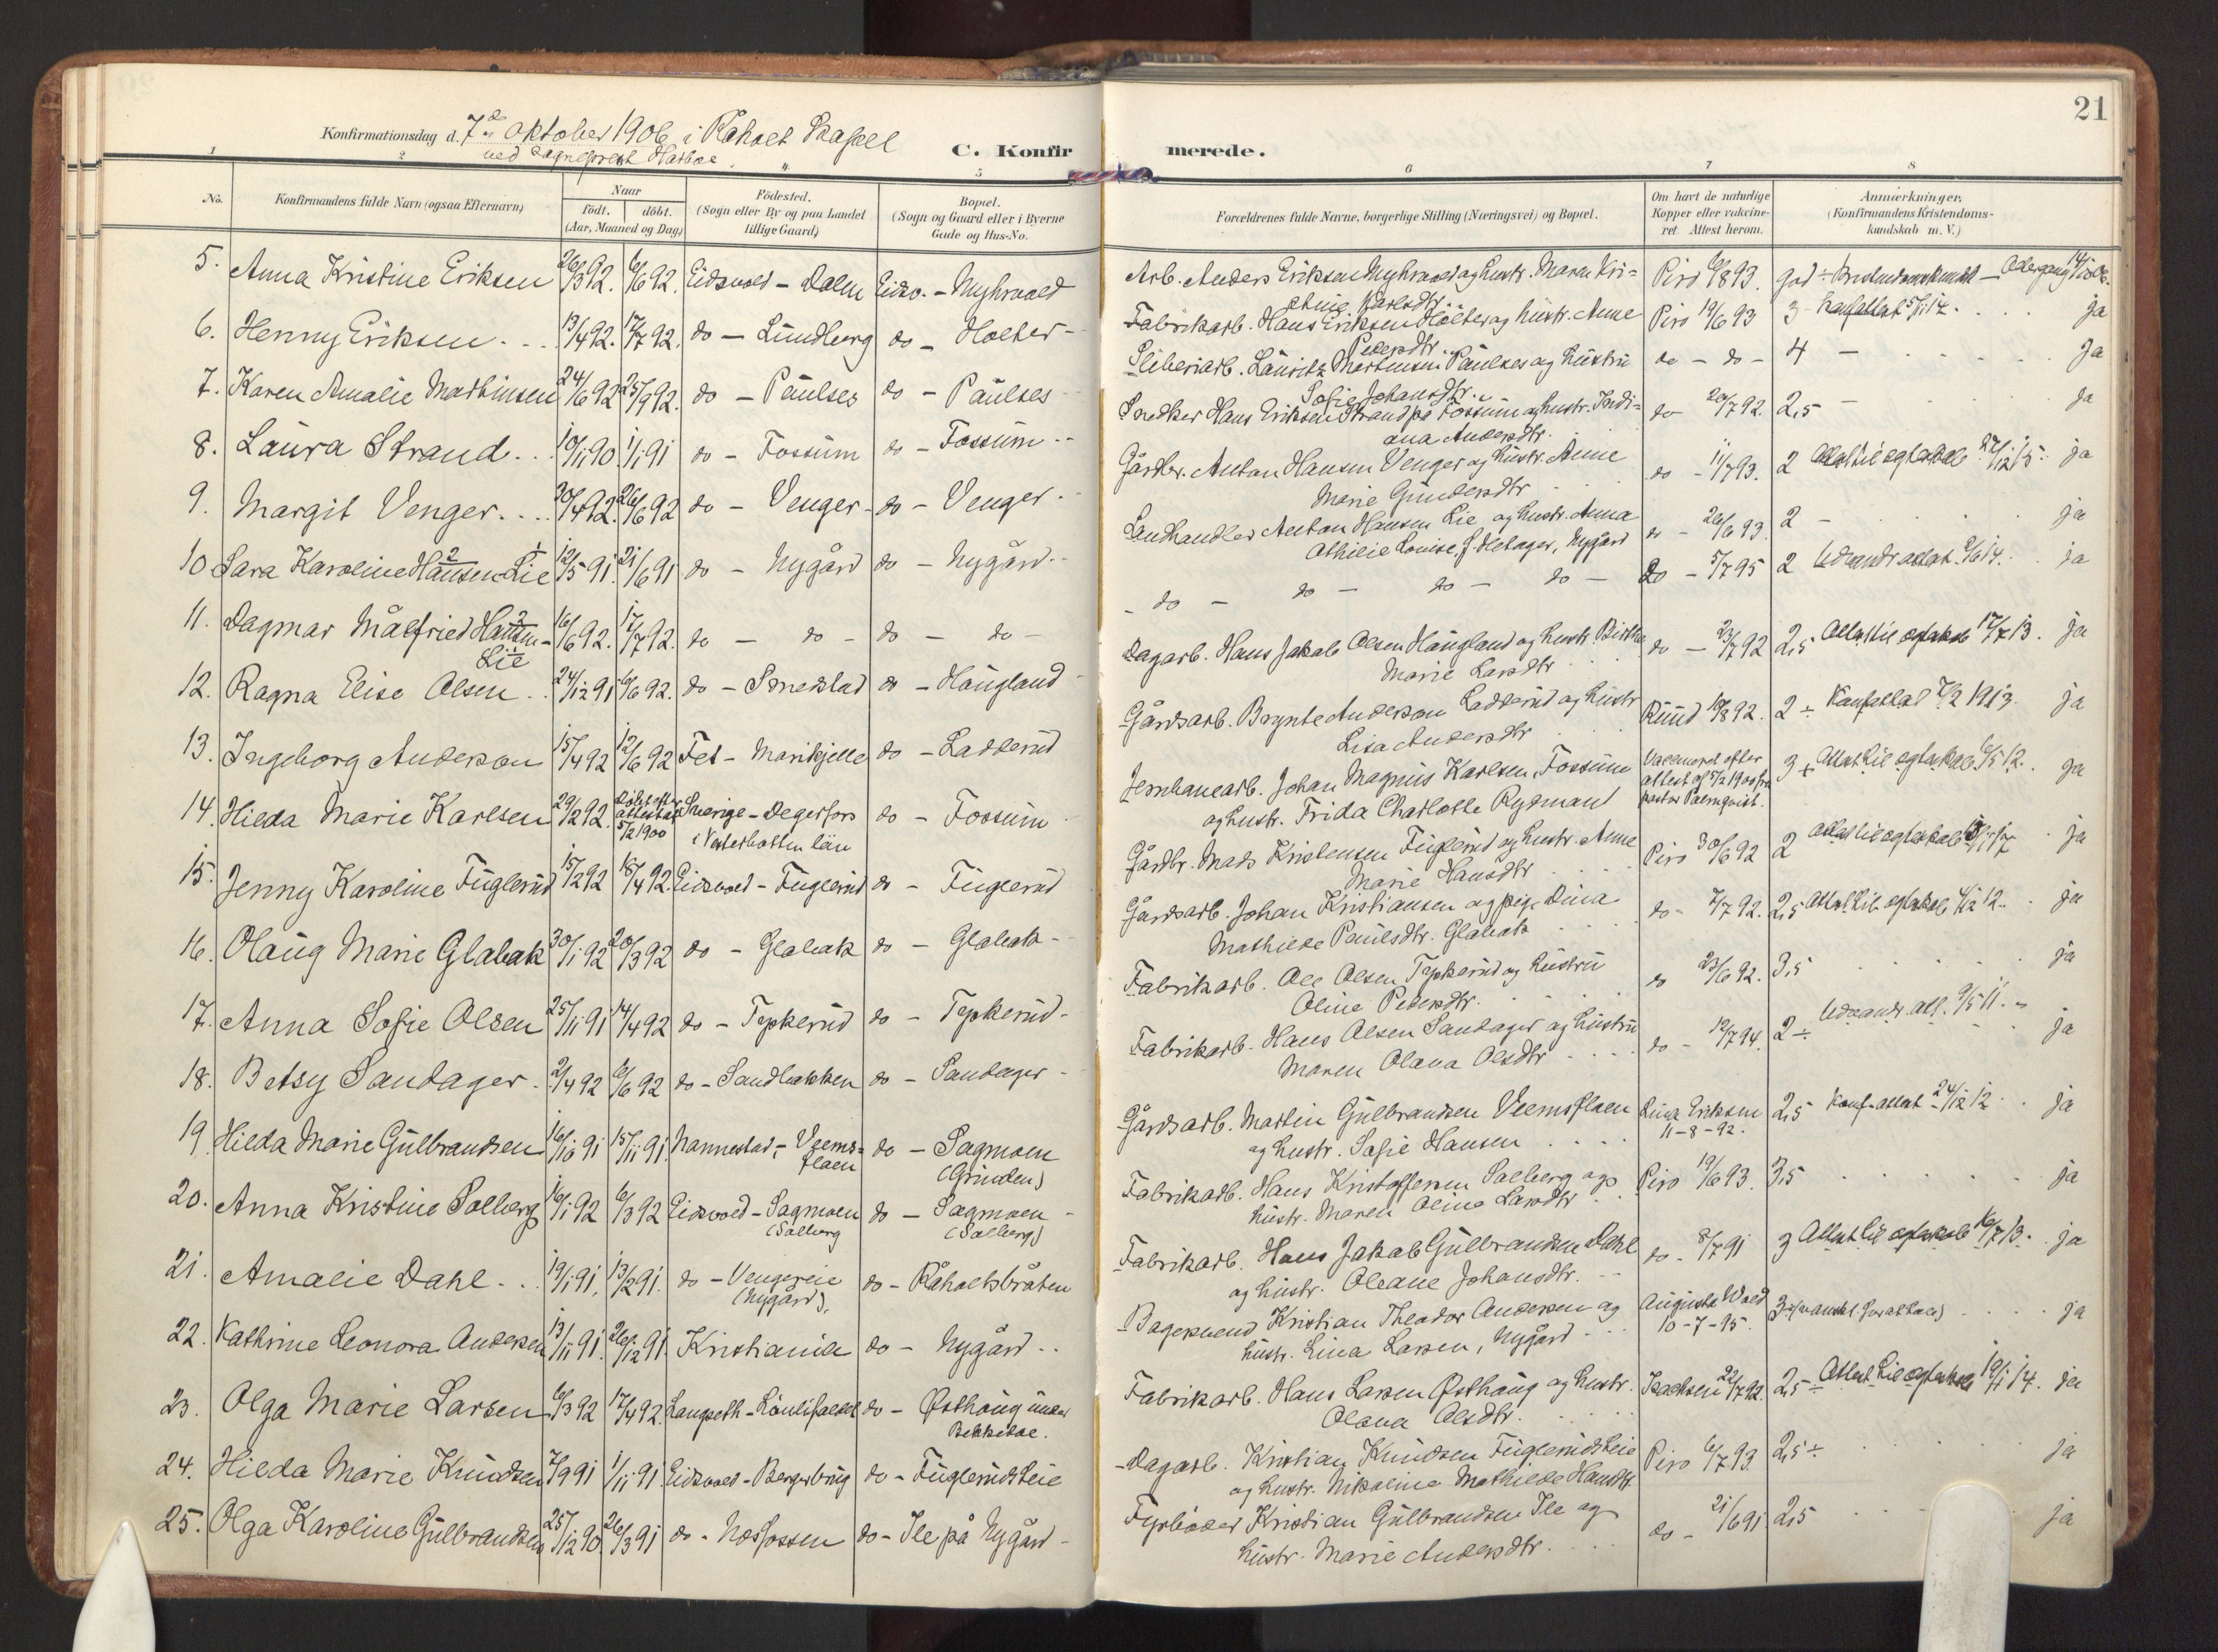 21
Konfirmationsdag d. 7de oktober 1906 i Råholt Kapel
ved Sogneprest Harboe.
C. Konfirmerede.
1 2 4 5 6 7 8
No. Konfirmandens fulde Navn (ogsaa Efternavn) Naar födt. döbt. (Aar, Maaned og Dag) Födested. (Sogn eller By og paa Landet tillige Gaard) Bopæl. (Sogn og Gaard eller i Byerne Gade og Hus-No. Forældrenes fulde Navne, borgerlige Stilling (Næringsvei) og Bopæl. Om havt de naturlige Kopper eller vakcineret. Attest herom. Anmærkninger, (Konfirmandens Kristendomskundskab m. V.)
5. Anna Kristine Eriksen 26/3 92. 6/6 92. Eidsvold - Dalen Eidsv. - Myhrvold Arb. Anders Eriksen Myhrvold og hustr. Maren Kri=
stine Karlsdtr. Piro 6/8 93. god
6. Henny Eriksen 13/4 92. 17/7 92. do - Lundberg do - Holter - Fabrikarb. Hans Eriksen Holter og hustr. Anne
Pedersdtr. Piro 19/6 93 3 ja
7. Karen Amalie Mathinsen 24/6 92 25/9 92. do - Paulses do - Paulses Sliberiarb. Lauritz Martinsen Paulses og hustru
Sofie Johansdtr. do - do - 4 - ja
8. Laura Strand 10/11 90. 1/1 91 do - Fossum do - Fossum Snedker Hans Eriksen Strand på Fossum og hustr. Indi=
ana Andersdtr. do 20/7 92. 2,5 - ja
9. Margit Venger 30/4 92. 26/6 92 do - Venger - do - Venger Gårdbr. Anton Hansen Venger og hustr. Anne
Marie Gundersdtr do - 11/7 93. 2 ja
10 Sara Karoline Hansen Lie 12/5 91. 21/6 91 do - Nygård do - Nygård Landhandler Anton Hansen Lie og hustr. Anna
Othilie Louise, Nygård do - 26/6 93. 2 - ja
11. Dagmar Målfried Hansen -
Lie 16/6 92. 17/7 92. do - do - do - do - - do - do - do - do - do - 5/7 95 2 ja
12. Ragna Elise Olsen 24/12 91 6/6 92. do - Smedstad do - Haugland Dagarb. Hans Jakob Olsen Haugland og hustr. Birthe
Marie Larsdtr do - 23/7 92 2,5 Attest til egteskab 17/7 13. ja
13. Ingeborg Anderson 15/4 92 12/6 92 Fet - Marikjelle do - Ladderud Gårdsarb. Brynte Anderson Ladderud og hustr
Lisa Andersdtr Ruud 18/8 92. 2 ÷ Konfattest 7/2 1913. ja
14. Hilda Marie Karlsen 29/2 92. Döbt efter attest af 5/2 1900 Sverige - Degerfors
i Vesterbotten län do - Fossum Jernbanearb. Johan Magnus Karlsen, Fossum
og hustr. Frida Charlotte Rydmant Vaccineret efter
attest af 5/2 1900 fra
pastor Palmqvist. 3 + Attest til egteskab 6/5 12. ja
15. Jenny Karoline Fuglerud 15/2 92 18/4 92. Eidsvold - Fuglerud do - Fuglerud Gårdbr. Mads Kristensen Fuglerud og hustr. Anne
Marie Hansdtr Piro 30/6 92 2 Attest til egteskab ja
16. Olaug Marie Glabak 30/1 92 20/3 92 do - Glabak do - Glabak - Gårdsarb. Johan Kristiansen og pige Dina
Mathilde Paulsdtr. Glabak do - 7/7 92. 2,5 Attest til egteskab ja
17. Anna Sofie Olsen 25/11 91 14/4 92 do - Tepkerud do - Tepkerud - Fabrikarb. Ole Olsen Tepkerud og hustru
Oline Pedersdtr. do 23/6 92. 3,5 ja
18. Betsy Sandager 2/4 92 6/6 92 do - Sandbakken do - Sandager - Fabrikarb. Hans Olsen Sandager og hustru
Maren Olava Olsdtr do - 12/7 94. 2 ÷ Udvandr. att. 9/5 11. ja
19 Hilda Marie Gulbrandsen 16/10 91 15/11 91. Nannestad, - Veems=
flaen do - Sagmoen
(Grinden) Gårdsarb. Martin Gulbrandsen Veemsflaen
og hustr. Sofie Hansen Lina Eriksen
11-8-92. 2,5 Konf.-attest 24/12 12 ja
20. Anna Kristine Solberg 16/1 92 6/3 92 Eidsvold - Sagmoen
(Solberg do - Sagmoen
(Solberg) Fabrikarb. Hans Kristoffersen Solberg og
hustr. Maren Oline Larsdtr Piro 19/6 93. 3,5 ja
21. Amalie Dahl 19/1 91. 13/2 91. do - Vengereie
(Nygård), do - Råholtsbråten Fabrikarb. Hans Jakob Gulbrandsen Dahl
og hustr. Oleane Johansdtr. do - 8/7 91 3 Attest til egteskab 16/7 13. ja
22. Kathrine Leonora Andersen 13/11 91. 26/12 91. Kristiania do - Nygård Bagersvend Kristian Theodor Andersen og
hustr. Lina Larsen, Nygård Augusta Wold
10-7-95. 3 ja
23. Olga Marie Larsen 6/3 92 17/4 92. Langseth - do - Østhaug under
Bekkedal. Fabrikarb. Hans Larsen Østhaug og hustr.
Olava Olsdtr. Isachsen 22/7 92. 2,5 ÷ Attest til egteskab 19/1 14. ja
24. Hilda Marie Knudsen 7/9 91 1/11 91 Eidsvold - Bergerbrug do - Fuglerudseie Dagarb. Kristian Knudsen Fuglerudseie
og hustr. Nikoline Mathilde Hansdtr. Piro 6/7 93 2,5 ÷ ja
25. Olga Karoline Gulbrandsen 25/12 90. 26/3 91 do - Nosfossen do - Ile på Nygård - Fyrböder Kristian Gulbrandsen Ile og
hustr. Marie Andersdtr. do - 21/6 91. 2,5 ja